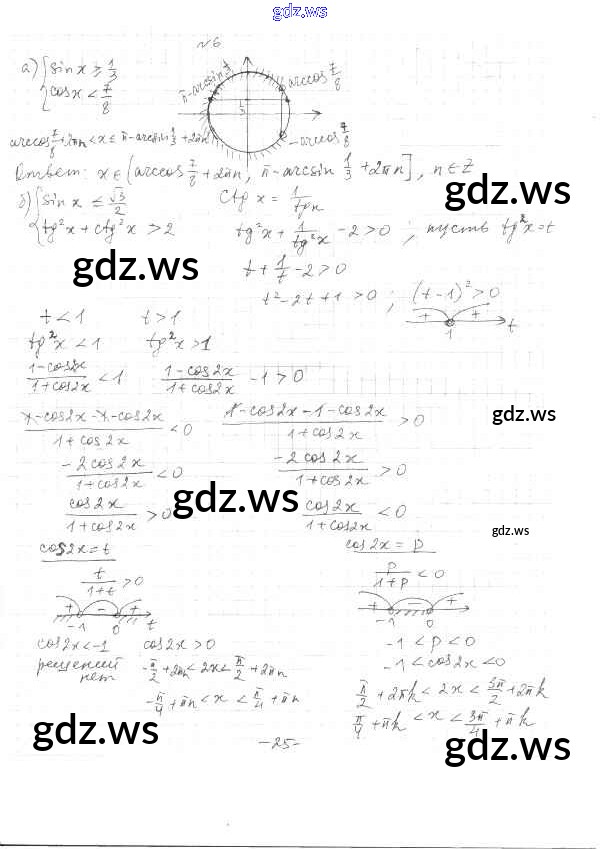 gdz.ws
№6
а) { sin x ≥ 1/3
{ cos x < 7/8
π-arcsin 1/3
arccos 7/8
1/3
-arccos 7/8
arccos 7/8 + 2πn < x ≤ π - arcsin 1/3 + 2πn
Ответ: x ∈ (arccos 7/8 + 2πn, π - arcsin 1/3 + 2πn], n ∈ Z
б) { sin x ≤ √3/2
ctg x = 1/tg x
{ tg²x + ctg²x > 2
tg²x + 1/tg²x - 2 > 0 ; пусть tg²x = t
gdz.ws
gdz.ws
t + 1/t - 2 > 0
t² - 2t + 1 > 0 ; (t-1)² > 0
+ + 1 t
t < 1 t > 1
tg²x < 1 tg²x > 1
(1-cos2x)/(1+cos2x) < 1 (1-cos2x)/(1+cos2x) - 1 > 0
gdz.ws
(1-cos2x-1-cos2x)/(1+cos2x) < 0 (1-cos2x-1-cos2x)/(1+cos2x) > 0
(-2cos2x)/(1+cos2x) < 0 (-2cos2x)/(1+cos2x) > 0
gdz.ws
cos2x/(1+cos2x) > 0 cos2x/(1+cos2x) < 0
gdz.ws
cos2x = t cos2x = p
t/(1+t) > 0 p/(1+p) < 0
+ - + -1 0 t
+ - + -1 0
cos2x < -1 cos2x > 0 -1 < p < 0
решений нет
-π/2 + 2πn < 2x < π/2 + 2πn -1 < cos2x < 0
-π/4 + πn < x < π/4 + πn π/2 + 2πk < 2x < 3π/2 + 2πk
π/4 + πk < x < 3π/4 + πk
gdz.ws
gdz.ws
-25-